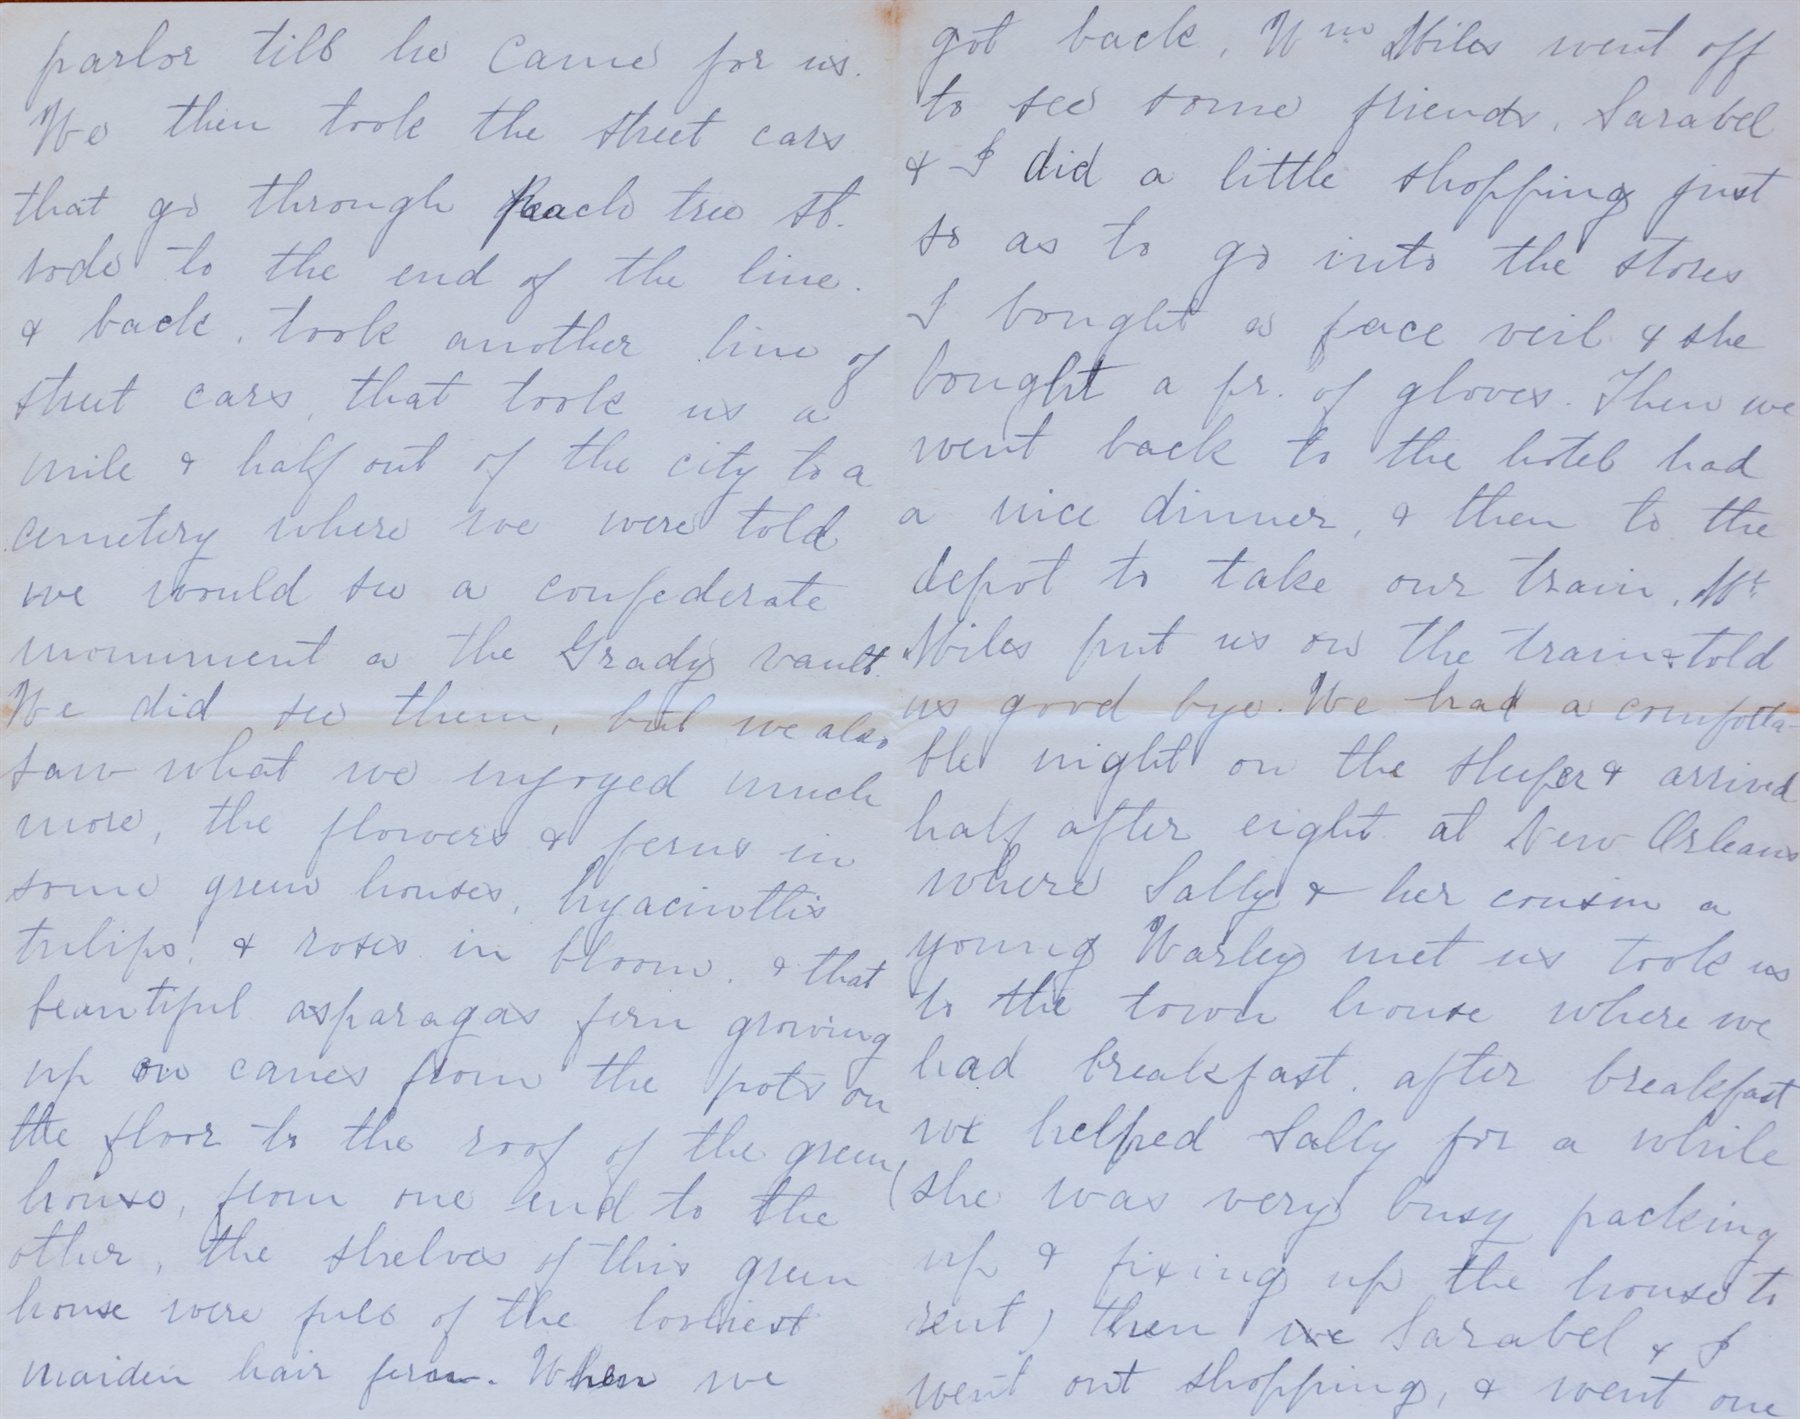 parlor till he came for us.
We then took the street cars
that go through Peach tree st.
rode to the end of the line.
& back, took another line of
street cars, that took us a
mile & half out of the city to a
cemetery where we were told
we would see a confederate
monument a the Gradys vault.
We did see them, but we also
saw what we injoyed much
more, the flowers & ferns in
some green houses, hyacinths
tulips, & roses in bloom. & that
beautiful asparagas fern growing
up on canes from the pots on
the floor to the roof of the green
house, from one end to the
other, the shelves of this green
house were full of the lovliest
maiden hair fern. When we
got back, Wm Miles went off
to see some friends, Sarabel
& I did a little shopping just
so as to go into the stores
I bought a face veil & she
bought a pr. of gloves. Then we
went back to the hotel had
a nice dinner, & then to the
depot to take our train, Mr
Miles put us on the train & told
us good bye. We had a comforta-
ble night on the sleeper & arrived
half after eight at New Orleans
where Sally & her cousin a
young Warley met us took us
to the town house where we
had breakfast. after breakfast
we helped Sally for a while
(she was very busy packing
up & fixing up the house to
rent) then we Sarabel & I
went out shopping, & went one